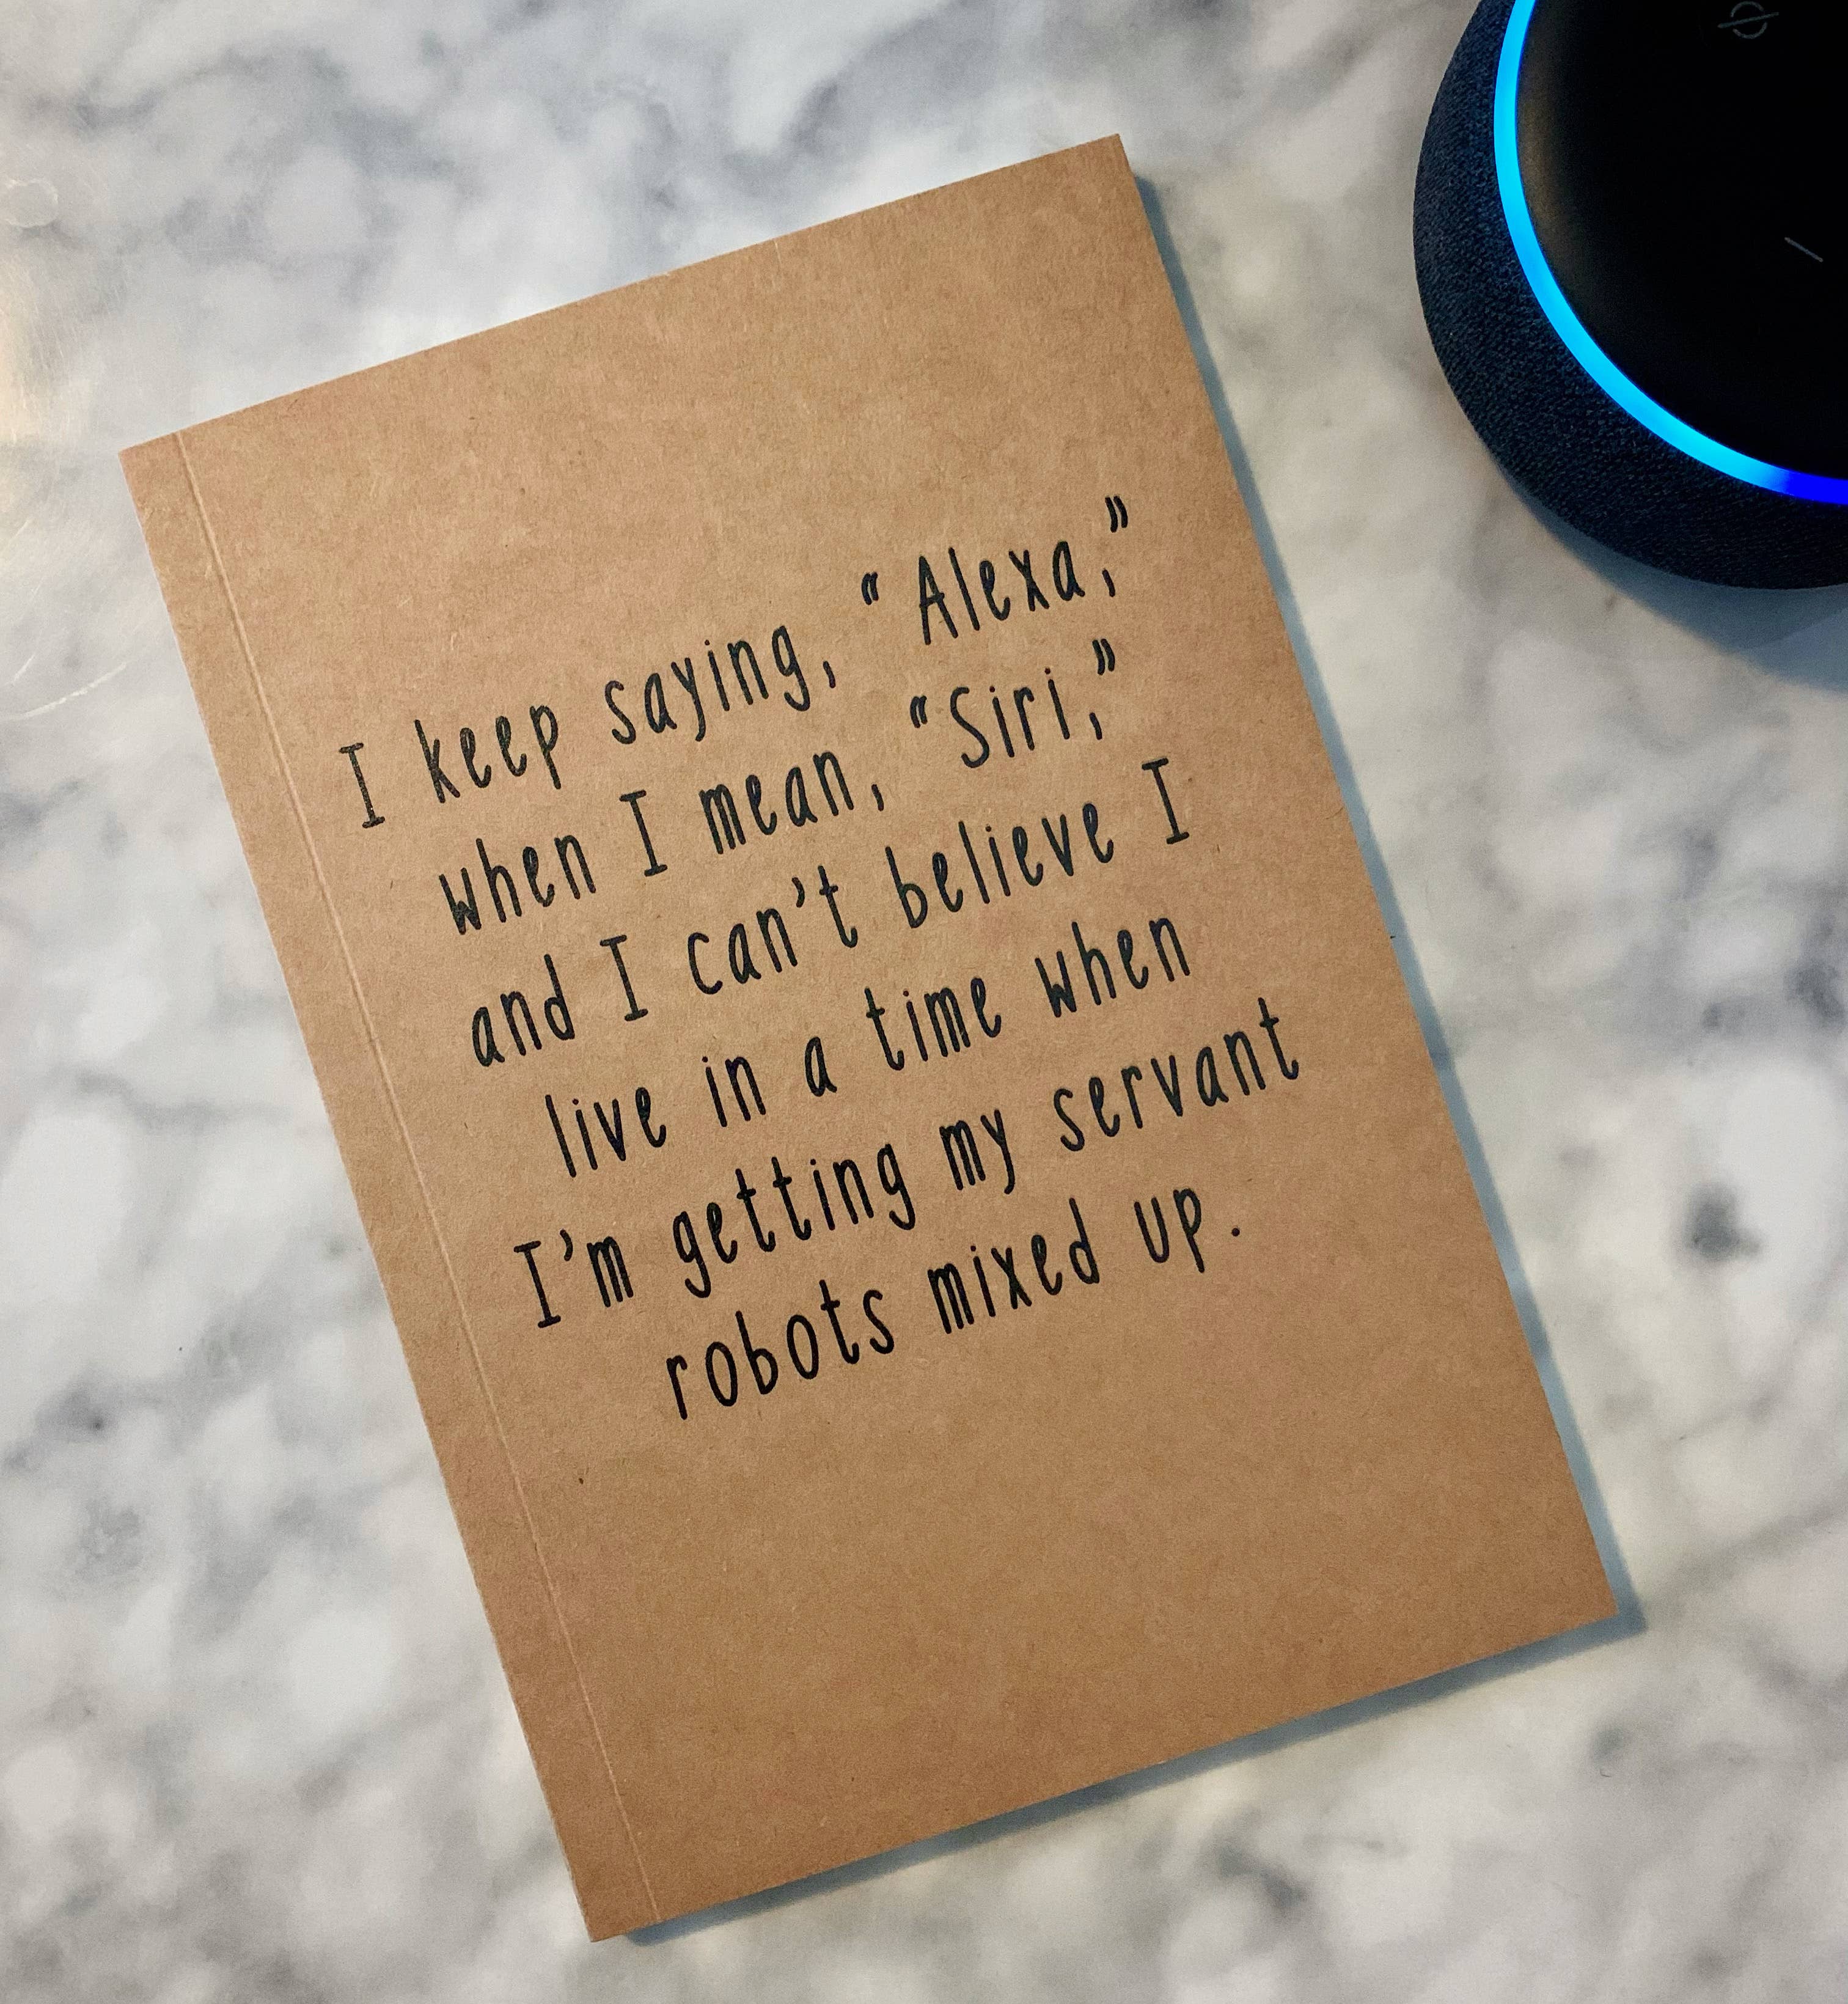 I keep saying, “Alexa,”
when I mean, “Siri,”
and I can’t believe I
live in a time when
I’m getting my servant
robots mixed up.